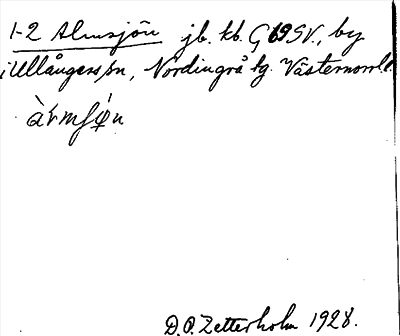 1-2 Almsjön jb. kb. G69SV., by
i Ullångers sn, Nordingrå tg. Västernorrl. l.
àƚmʃø̀n
D.O. Zetterholm 1928.